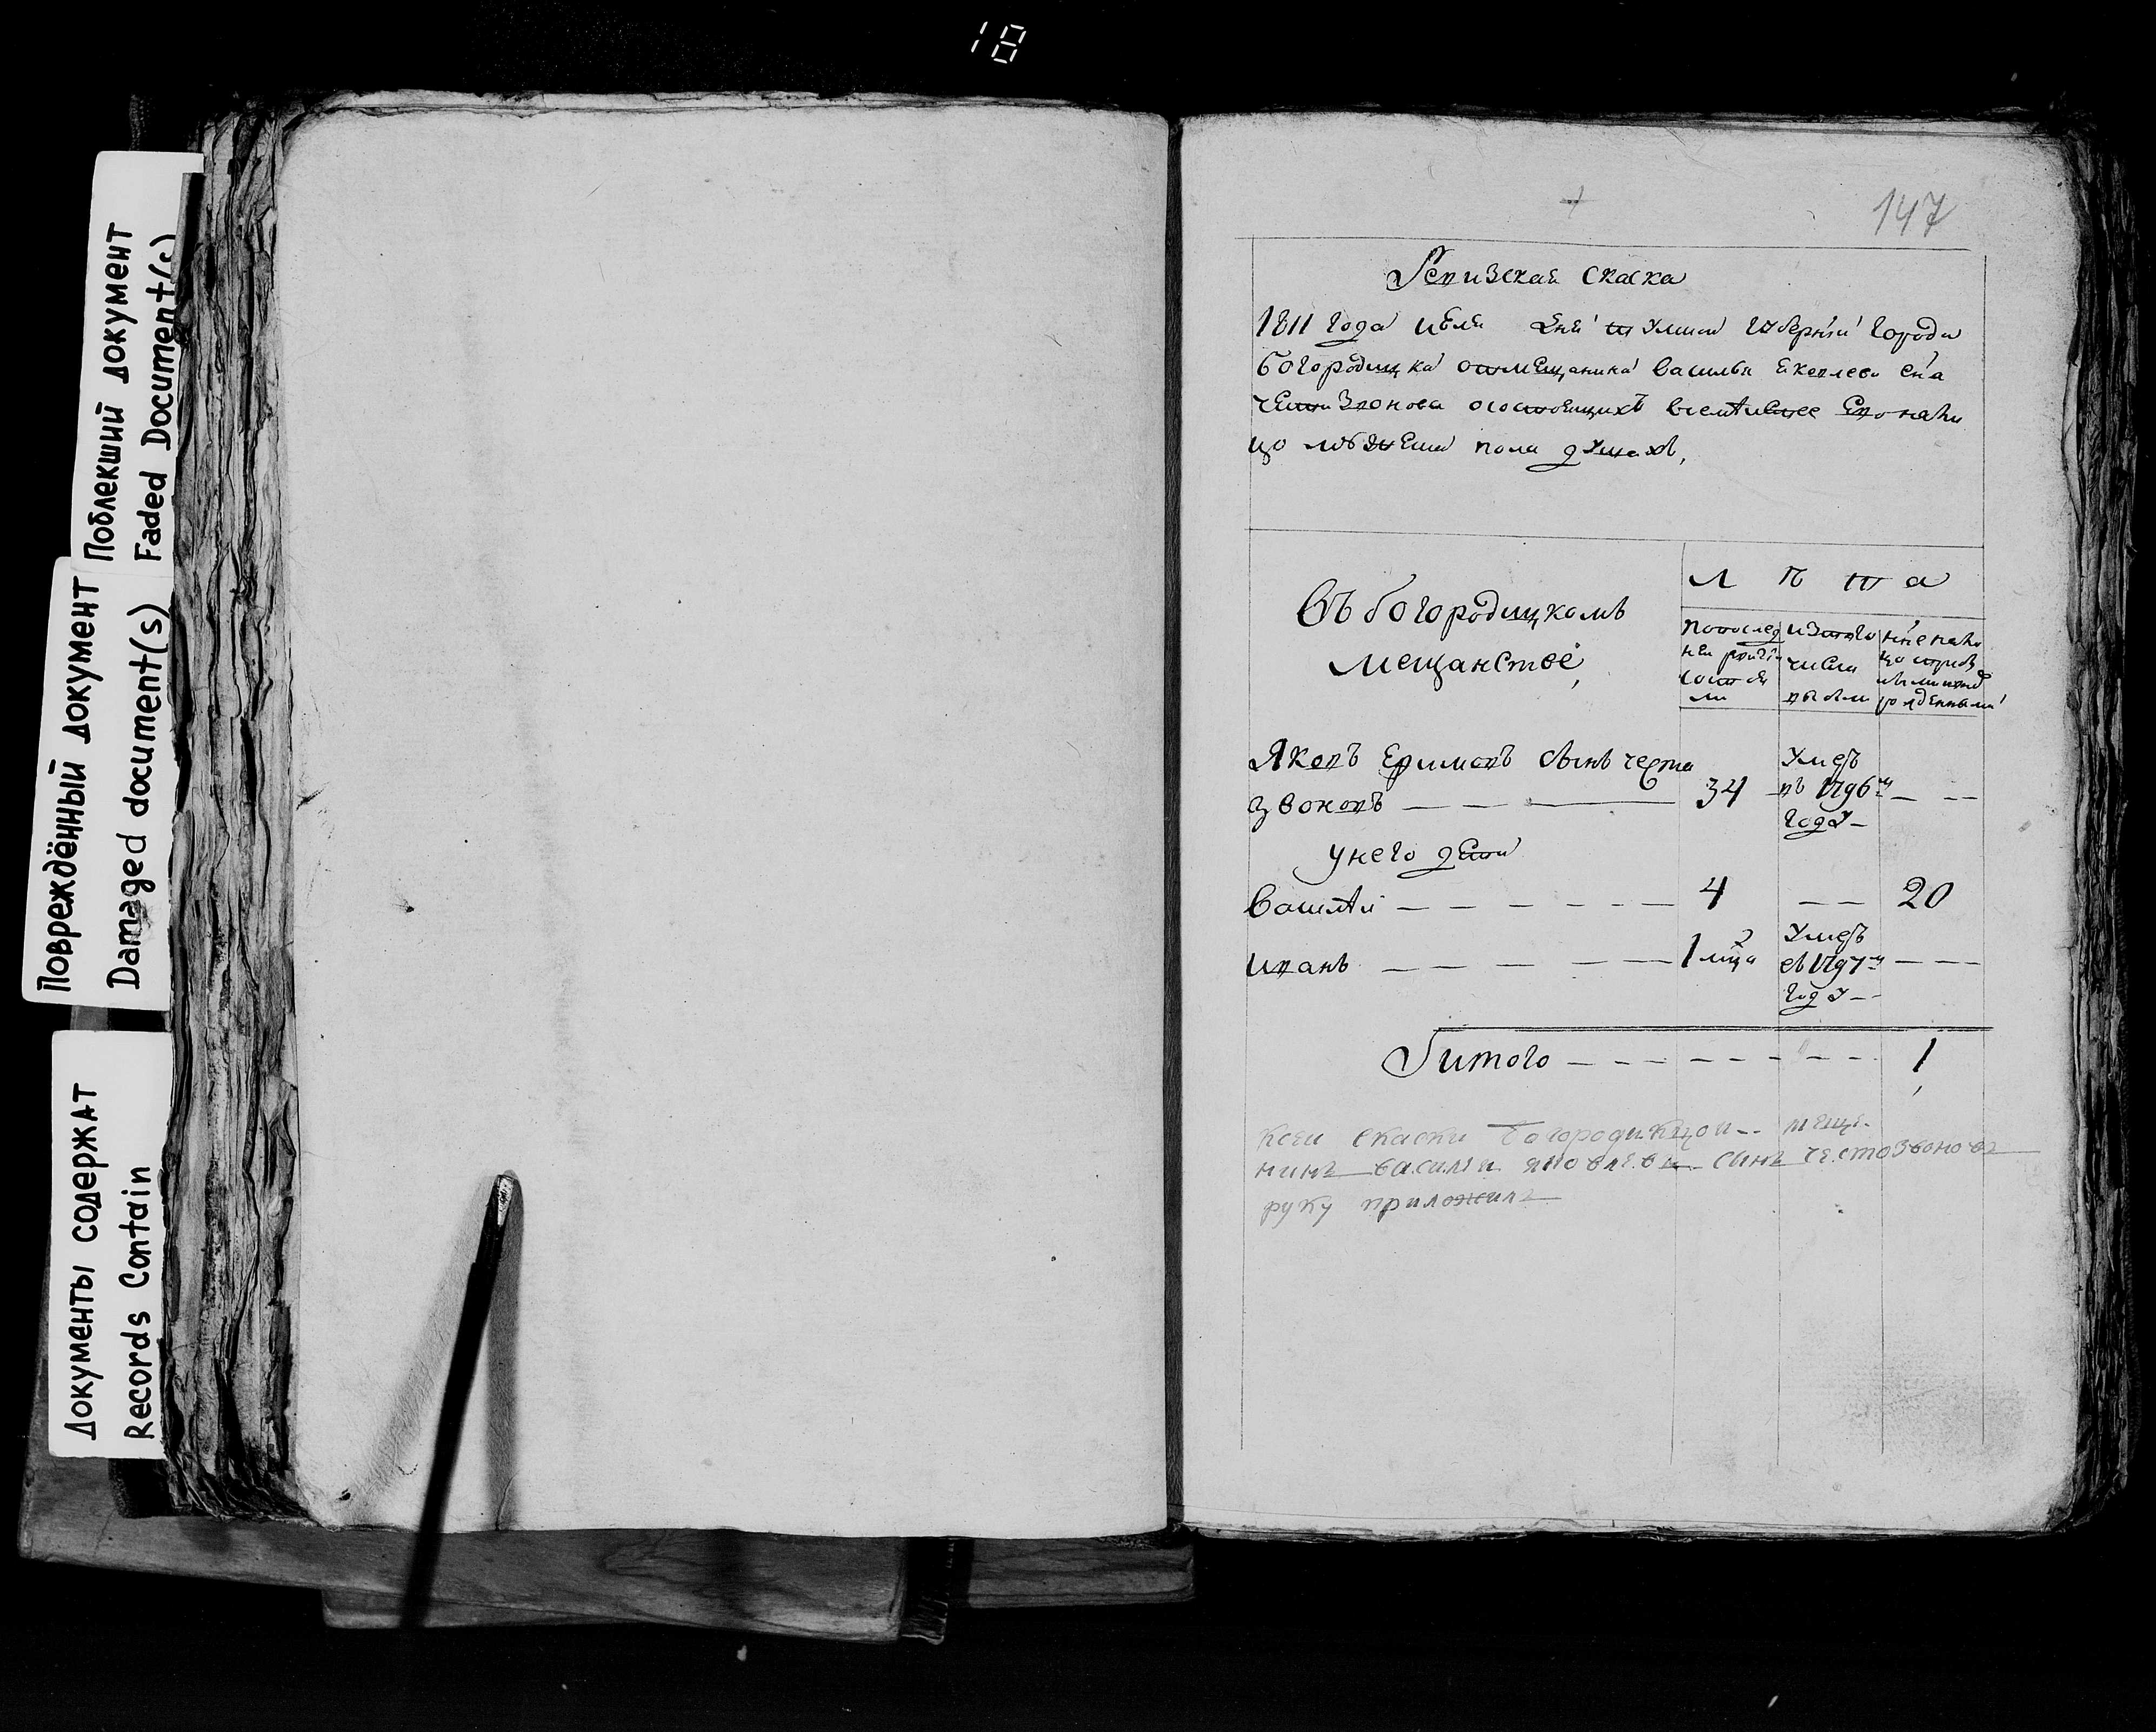 18
Поблекший документ
Faded Document(s)
Повреждённый документ
Damaged document(s)
Документы содержат
Records Contain
147
Ревизская скаска
1811 года июля дня тулской губернии города
богородицка отмещанина василья яковлева сна
честозвонова осостоящихъ вместившее налицо
цо мужеска пола душахъ,
Въ богородицкомъ
мещанстве,
л ѣ т а
попослед
ней ревизи
состоя
ли
изтого
числа
выбыли
ныне нали
цо
рожденными
Яковъ Ефимовъ сынъ честа
звоновъ 34
Умеръ
въ 1796м
году
унего дети
Василей 4 20
Иванъ 1 мца
Умеръ
въ 1797м
году
Итого 1
ксеи скаски богородикцои меща
нинъ василеи яковлевъ сынъ честозвоновъ
руку приложилъ